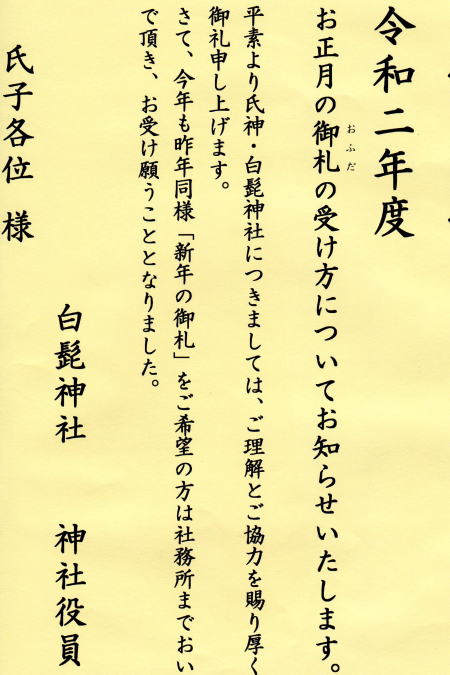 令和二年度
お正月の御札の受け方についてお知らせいたします。
おふだ
平素より氏神・白髭神社につきましては、ご理解とご協力を賜り厚く
御礼申し上げます。
さて、今年も昨年同様「新年の御札」をご希望の方は社務所までおい
で頂き、お受け願うこととなりました。
白髭神社　神社役員
氏子各位　様